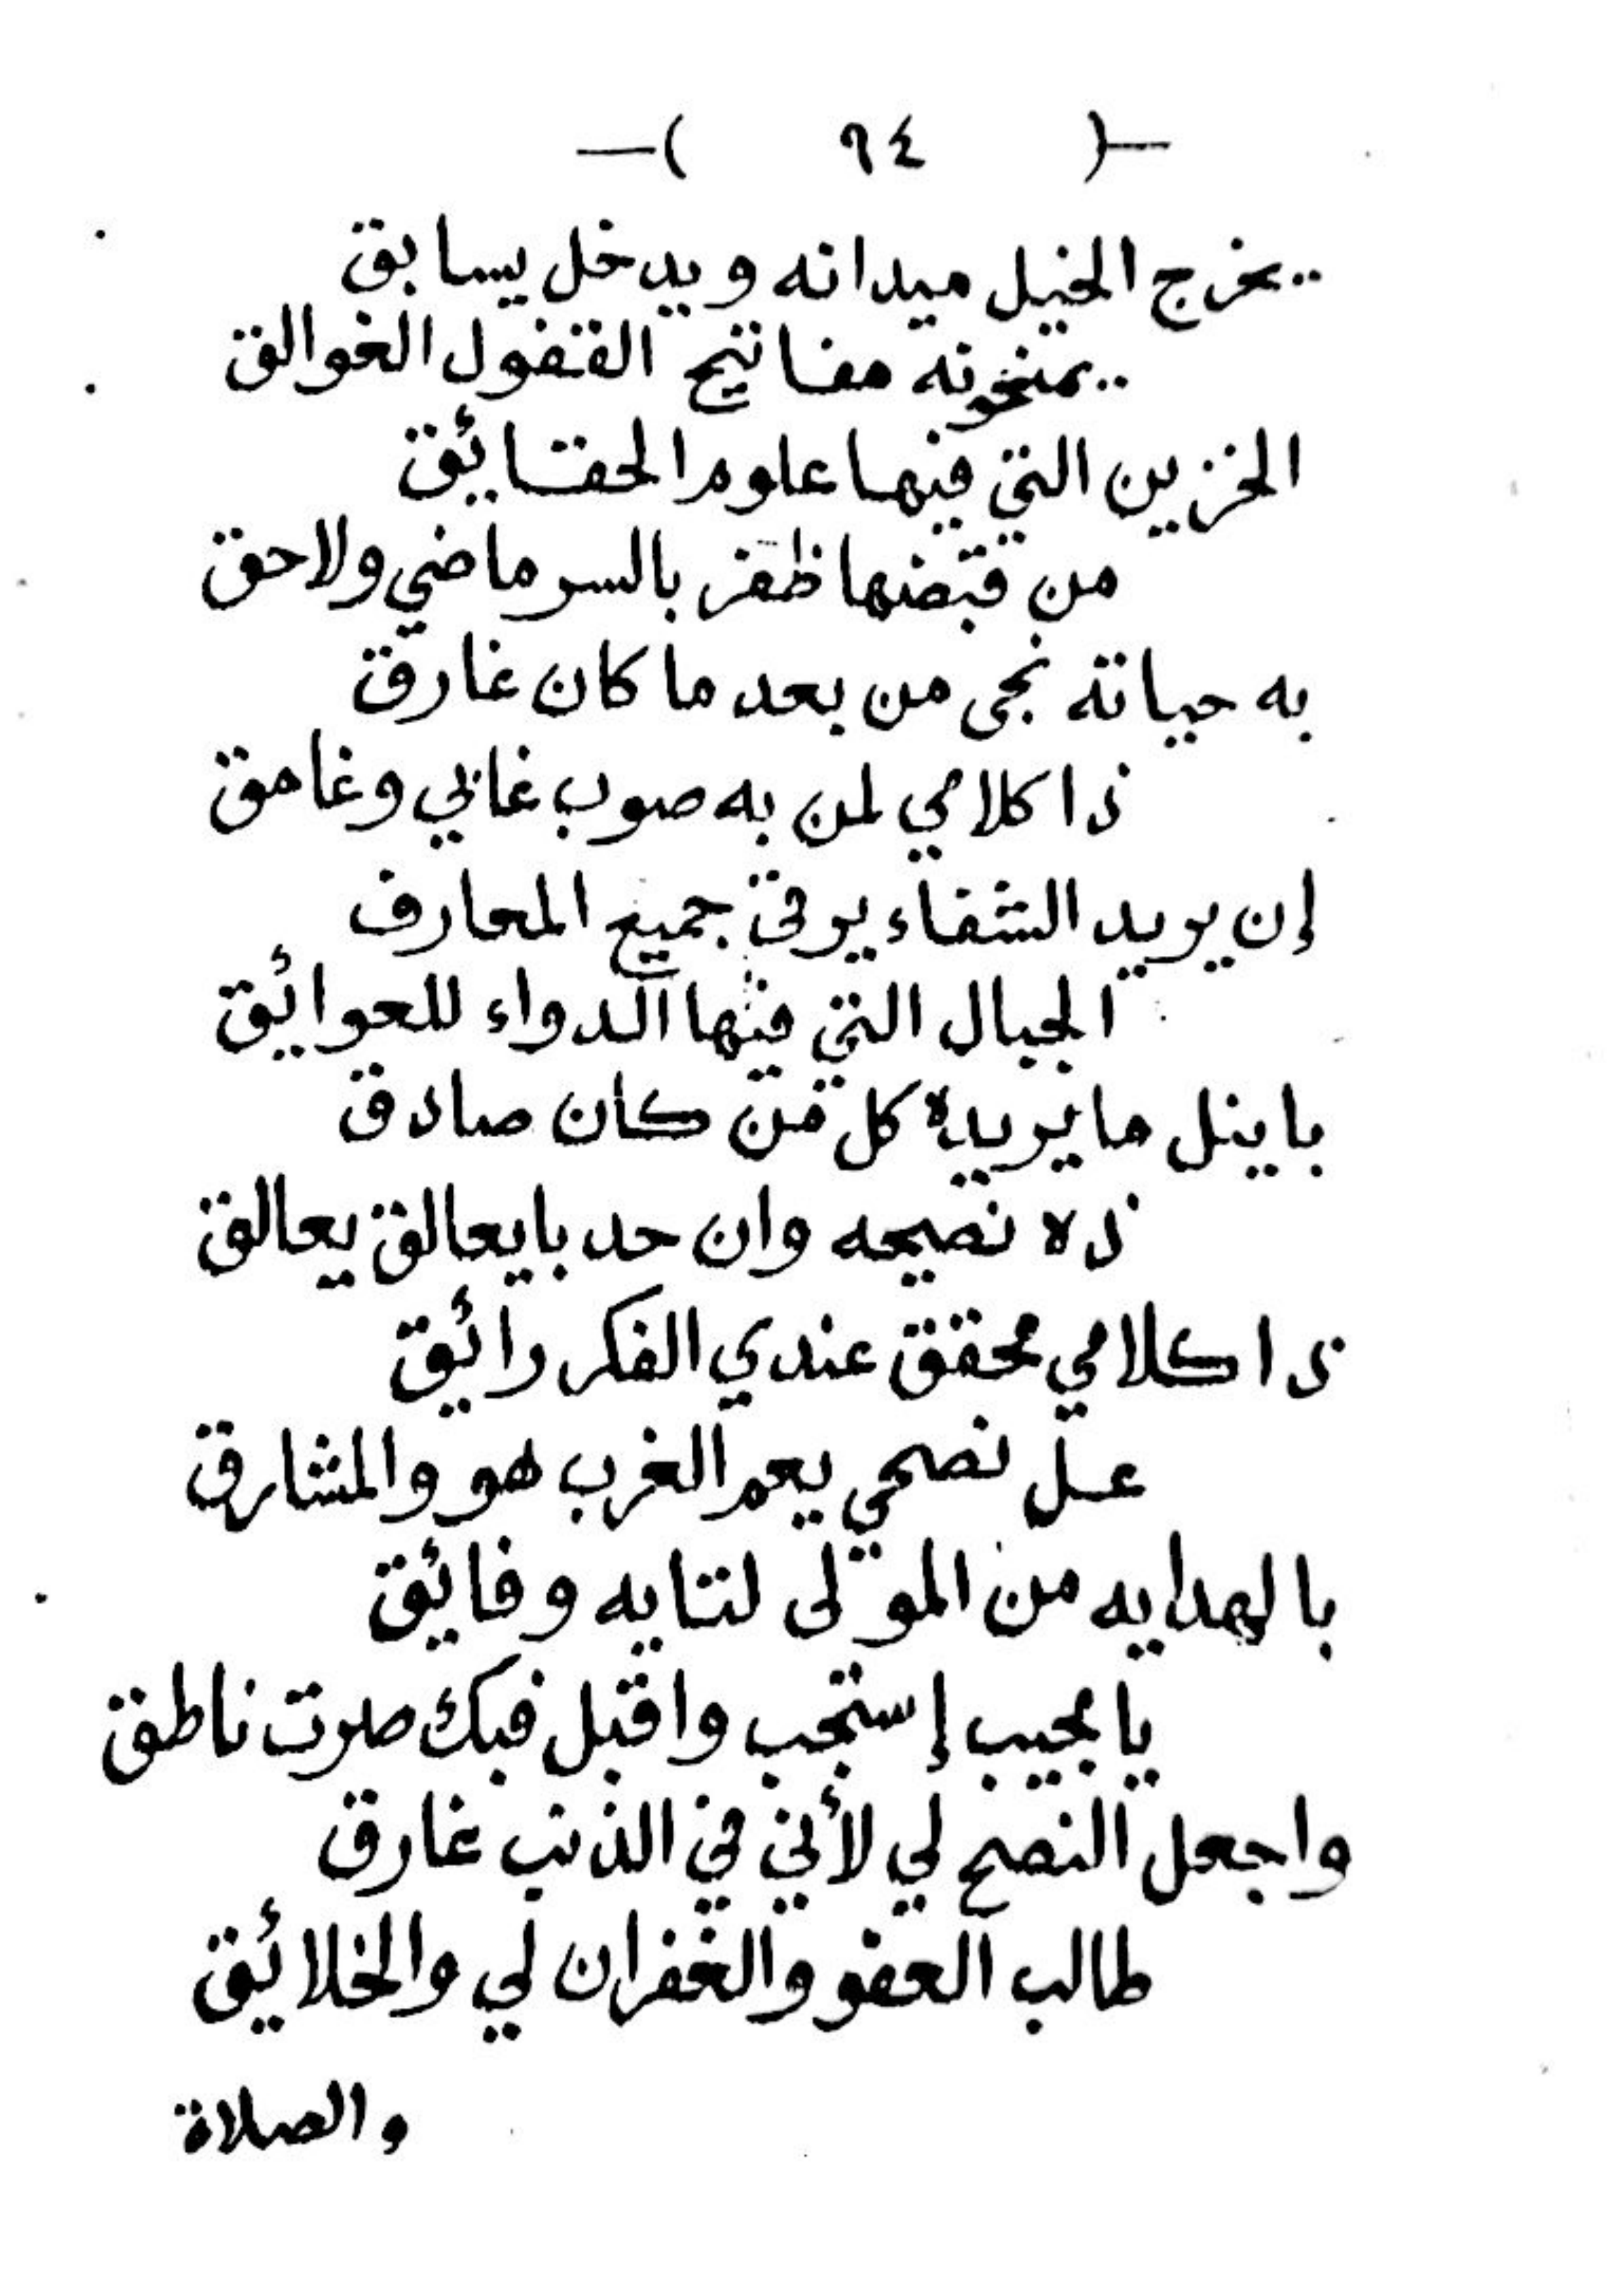 —( ٩٤ )—
يخرج الخيل ميدانه ويدخل يسابق
يمنحونه مفاتيح القفول الغوالق
الخزين التي فيها علوم الحقايئق
من قبضها ظفر بالسر ماضي ولاحق
به حياته نجى من بعد ما كان غارق
ذا كلامي لمن به صوب غابي وغامق
إن يريد الشفاء يرقى جميع المعارف
الجبال التي فيها الدواء للعوائق
باينل ما يريده كل من كان صادق
ذه نصيحه وان حد بايعالق يعالق
ذا كلامي محقق عندي الفكر رائق
عل نصحي يعم الغرب هو والمشارق
بالهدايه من المولى لتايه وفائق
يا مجيب إستجب واقبل فبك صرت ناطق
واجعل النصح لي لأني في الذنب غارق
طالب العفو والغفران لي والخلائق
والصلاة